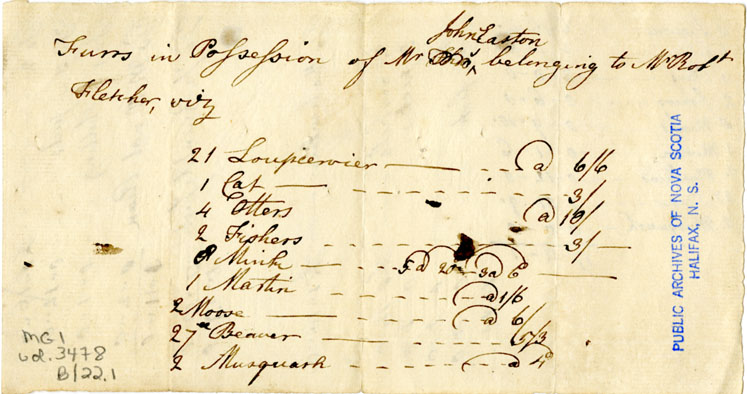 John Easton
Furrs in Possession of Mr belonging to Mr Robt
Fletcher, viz
21 Loupcervier — a 6/6
1 Cat — 3/
4 Otters a 10/
2 Fishers 3/—
8 Mink — 5 a 20 3 a 6d —
1 Martin a 1/6
2 Moose a 6/
27 Beaver
2 Musquash a 4d
MG1
vol. 3478
B/22.1
PUBLIC ARCHIVES OF NOVA SCOTIA
HALIFAX, N. S.